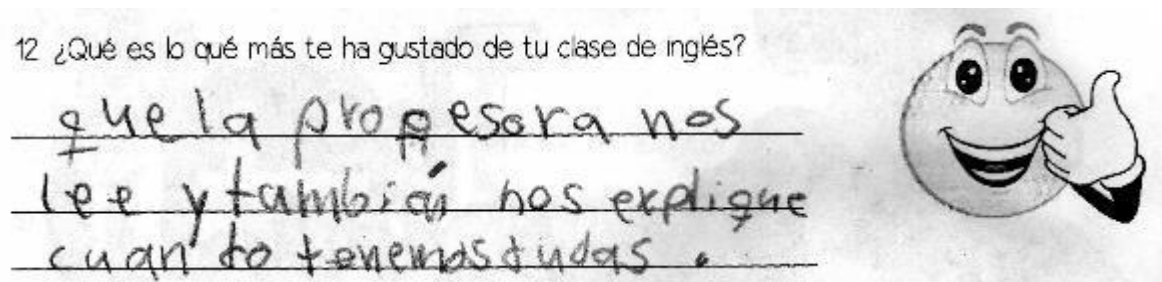 12 ¿Qué es lo qué más te ha gustado de tu clase de inglés?
que la profesora nos
lee y también nos explique
cuan to tenemos dudas .